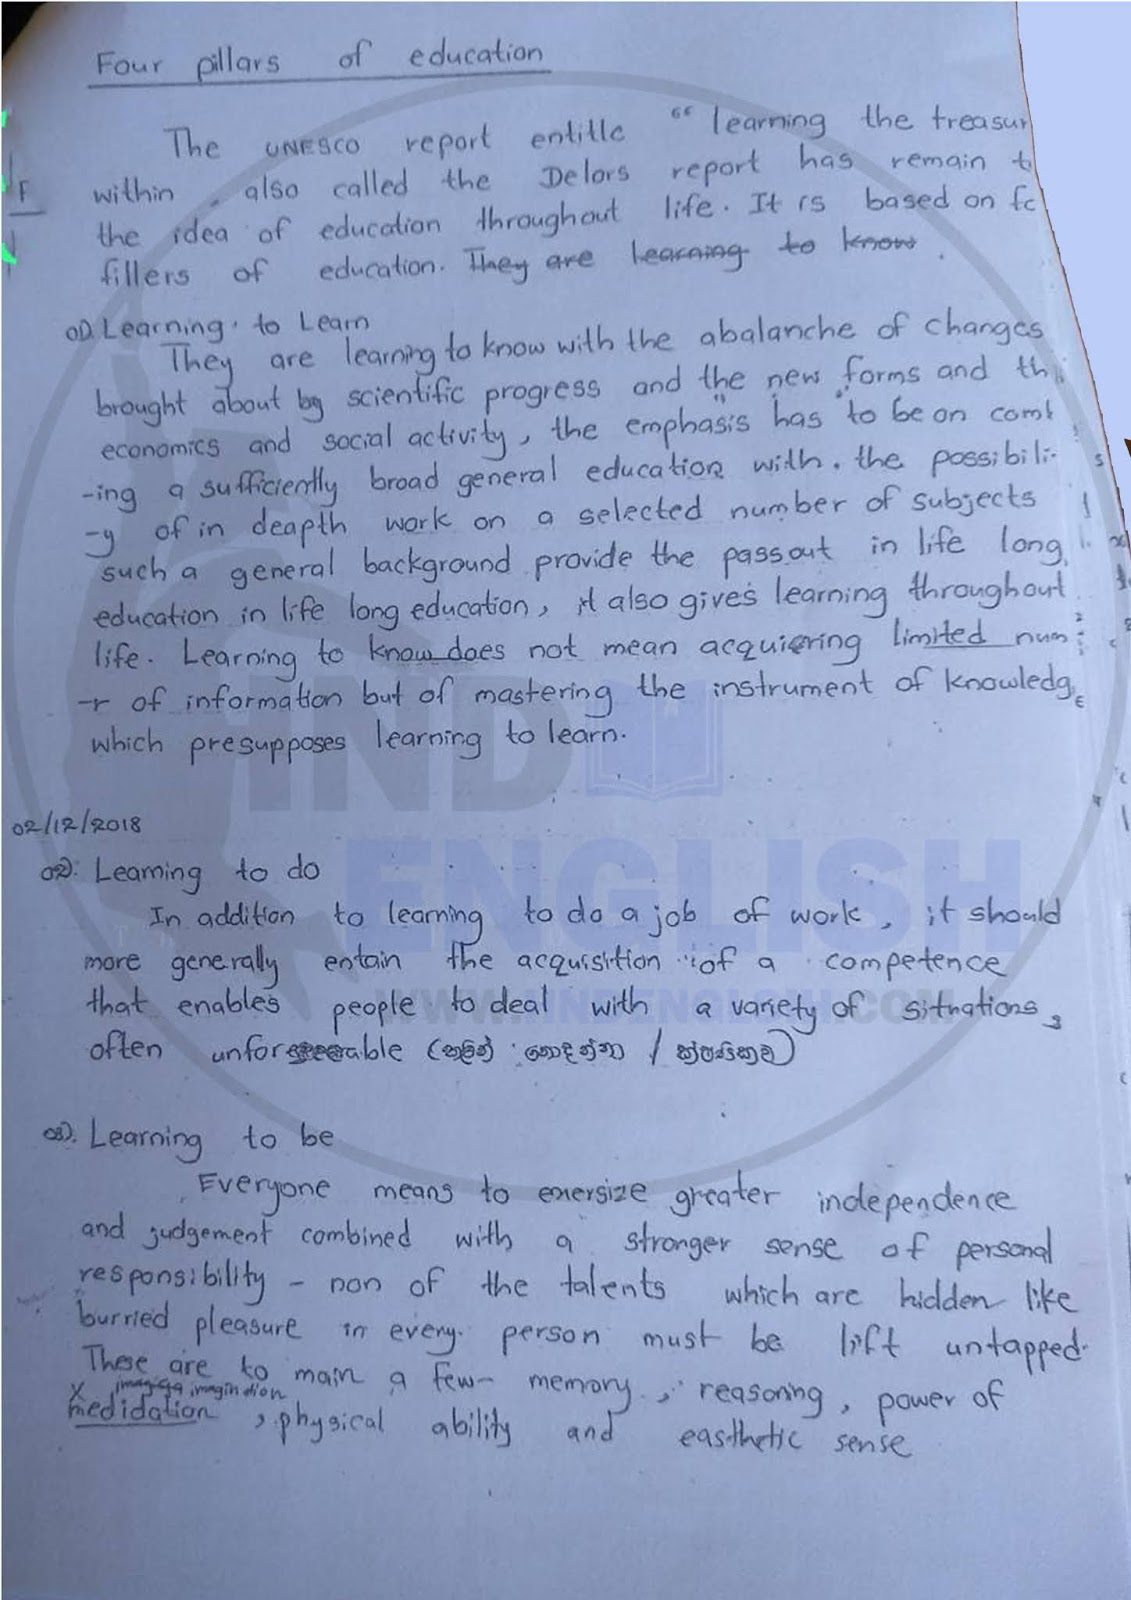 Four pillars of education
The UNESCO report entitle " learning the treasur
within , also called the Delors report has remain t
F
the idea of education throughout life. It is based on fc
fillers of education. They are learning to know .
01). Learning to Learn
They are learning to know with the abalanche of changes
brought about by scientific progress and the new forms and th
economics and social activity, the emphasis has to be on comb
-ing a sufficiently broad general education with the possibili-
-y of in deapth work on a selected number of subjects
such a general background provide the passout in life long
education in life long education, it also gives learning throughout
life. Learning to know does not mean acquiering limited num
-r of information but of mastering the instrument of knowledg
which presupposes learning to learn.
02/12/2018
02). Learning to do
In addition to learning to do a job of work, it should
more generally entain the acquisition of a competence
that enables people to deal with a variety of situations,
often unforseeable
03). Learning to be
Everyone means to exersize greater independence
and judgement combined with a stronger sense of personal
responsibility - non of the talents which are hidden like
burried pleasure in every person must be lift untapped.
These are to main a few- memory, reasoning, power of
X imagindion
medidation, physical ability and easthetic sense
IND
ENGLISH
WWW.INDENGLISH.COM